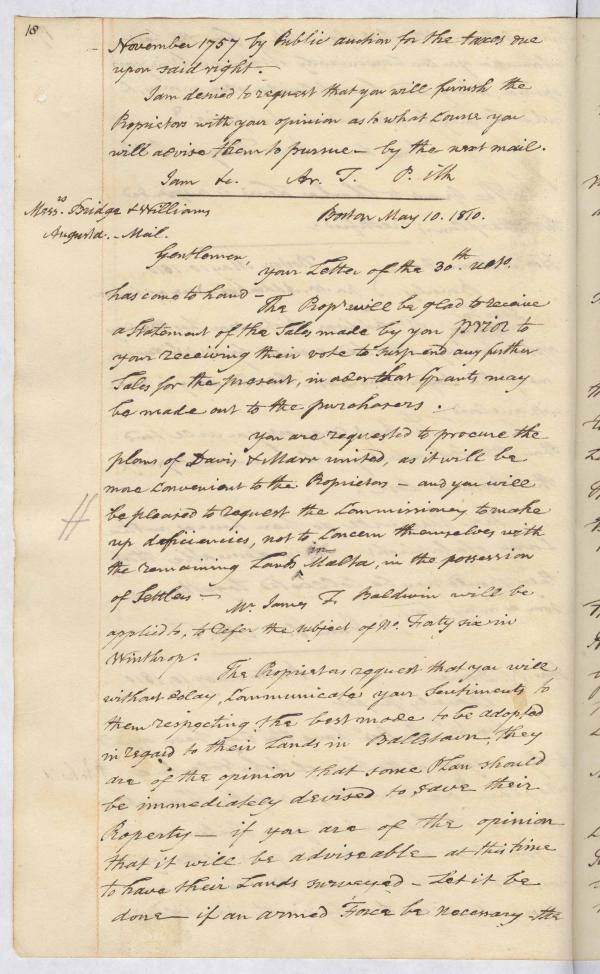 18
November 1757 by Public auction for the taxes due
upon said right.
I am desired to request that you will furnish the
Proprietors with your opinion as to what course you
will advise them to pursue - by the next mail.
I am &c. Ar. T. P. Clk
Messrs. Bridge & Williams
Augusta. Mail.
Boston May 10. 1810.
Gentlemen,
your Letter of the 30th. ulto.
has come to hand -
The Proprs will be glad to receive
a Statement of the Sales made by you prior to
your receiving their vote to suspend any further
Sales for the present, in order that Grants may
be made out to the purchasers.
you are requested to procure the
plans of Davis & Marr united, as it will be
more convenient to the Proprietors - and you will
be pleased to request the Commissioners to make
up deficiencies, not to concern themselves with
the remaining Lands in Malta, in the possession
of Settlers -
Mr. James F. Baldwin will be
applied to, to defer the subject of No. Forty six in
Winthrop.
The Proprietors request that you will
without delay, communicate your Sentiments to
them respecting the best mode to be adopted
in regard to their Lands in Ballstown, they
are of the opinion that some Plan should
be immediately devised to save their
Property - if you are of the opinion
that it will be adviseable at this time
to have their Lands surveyed - Let it be
done - if an armed Force be necessary - the